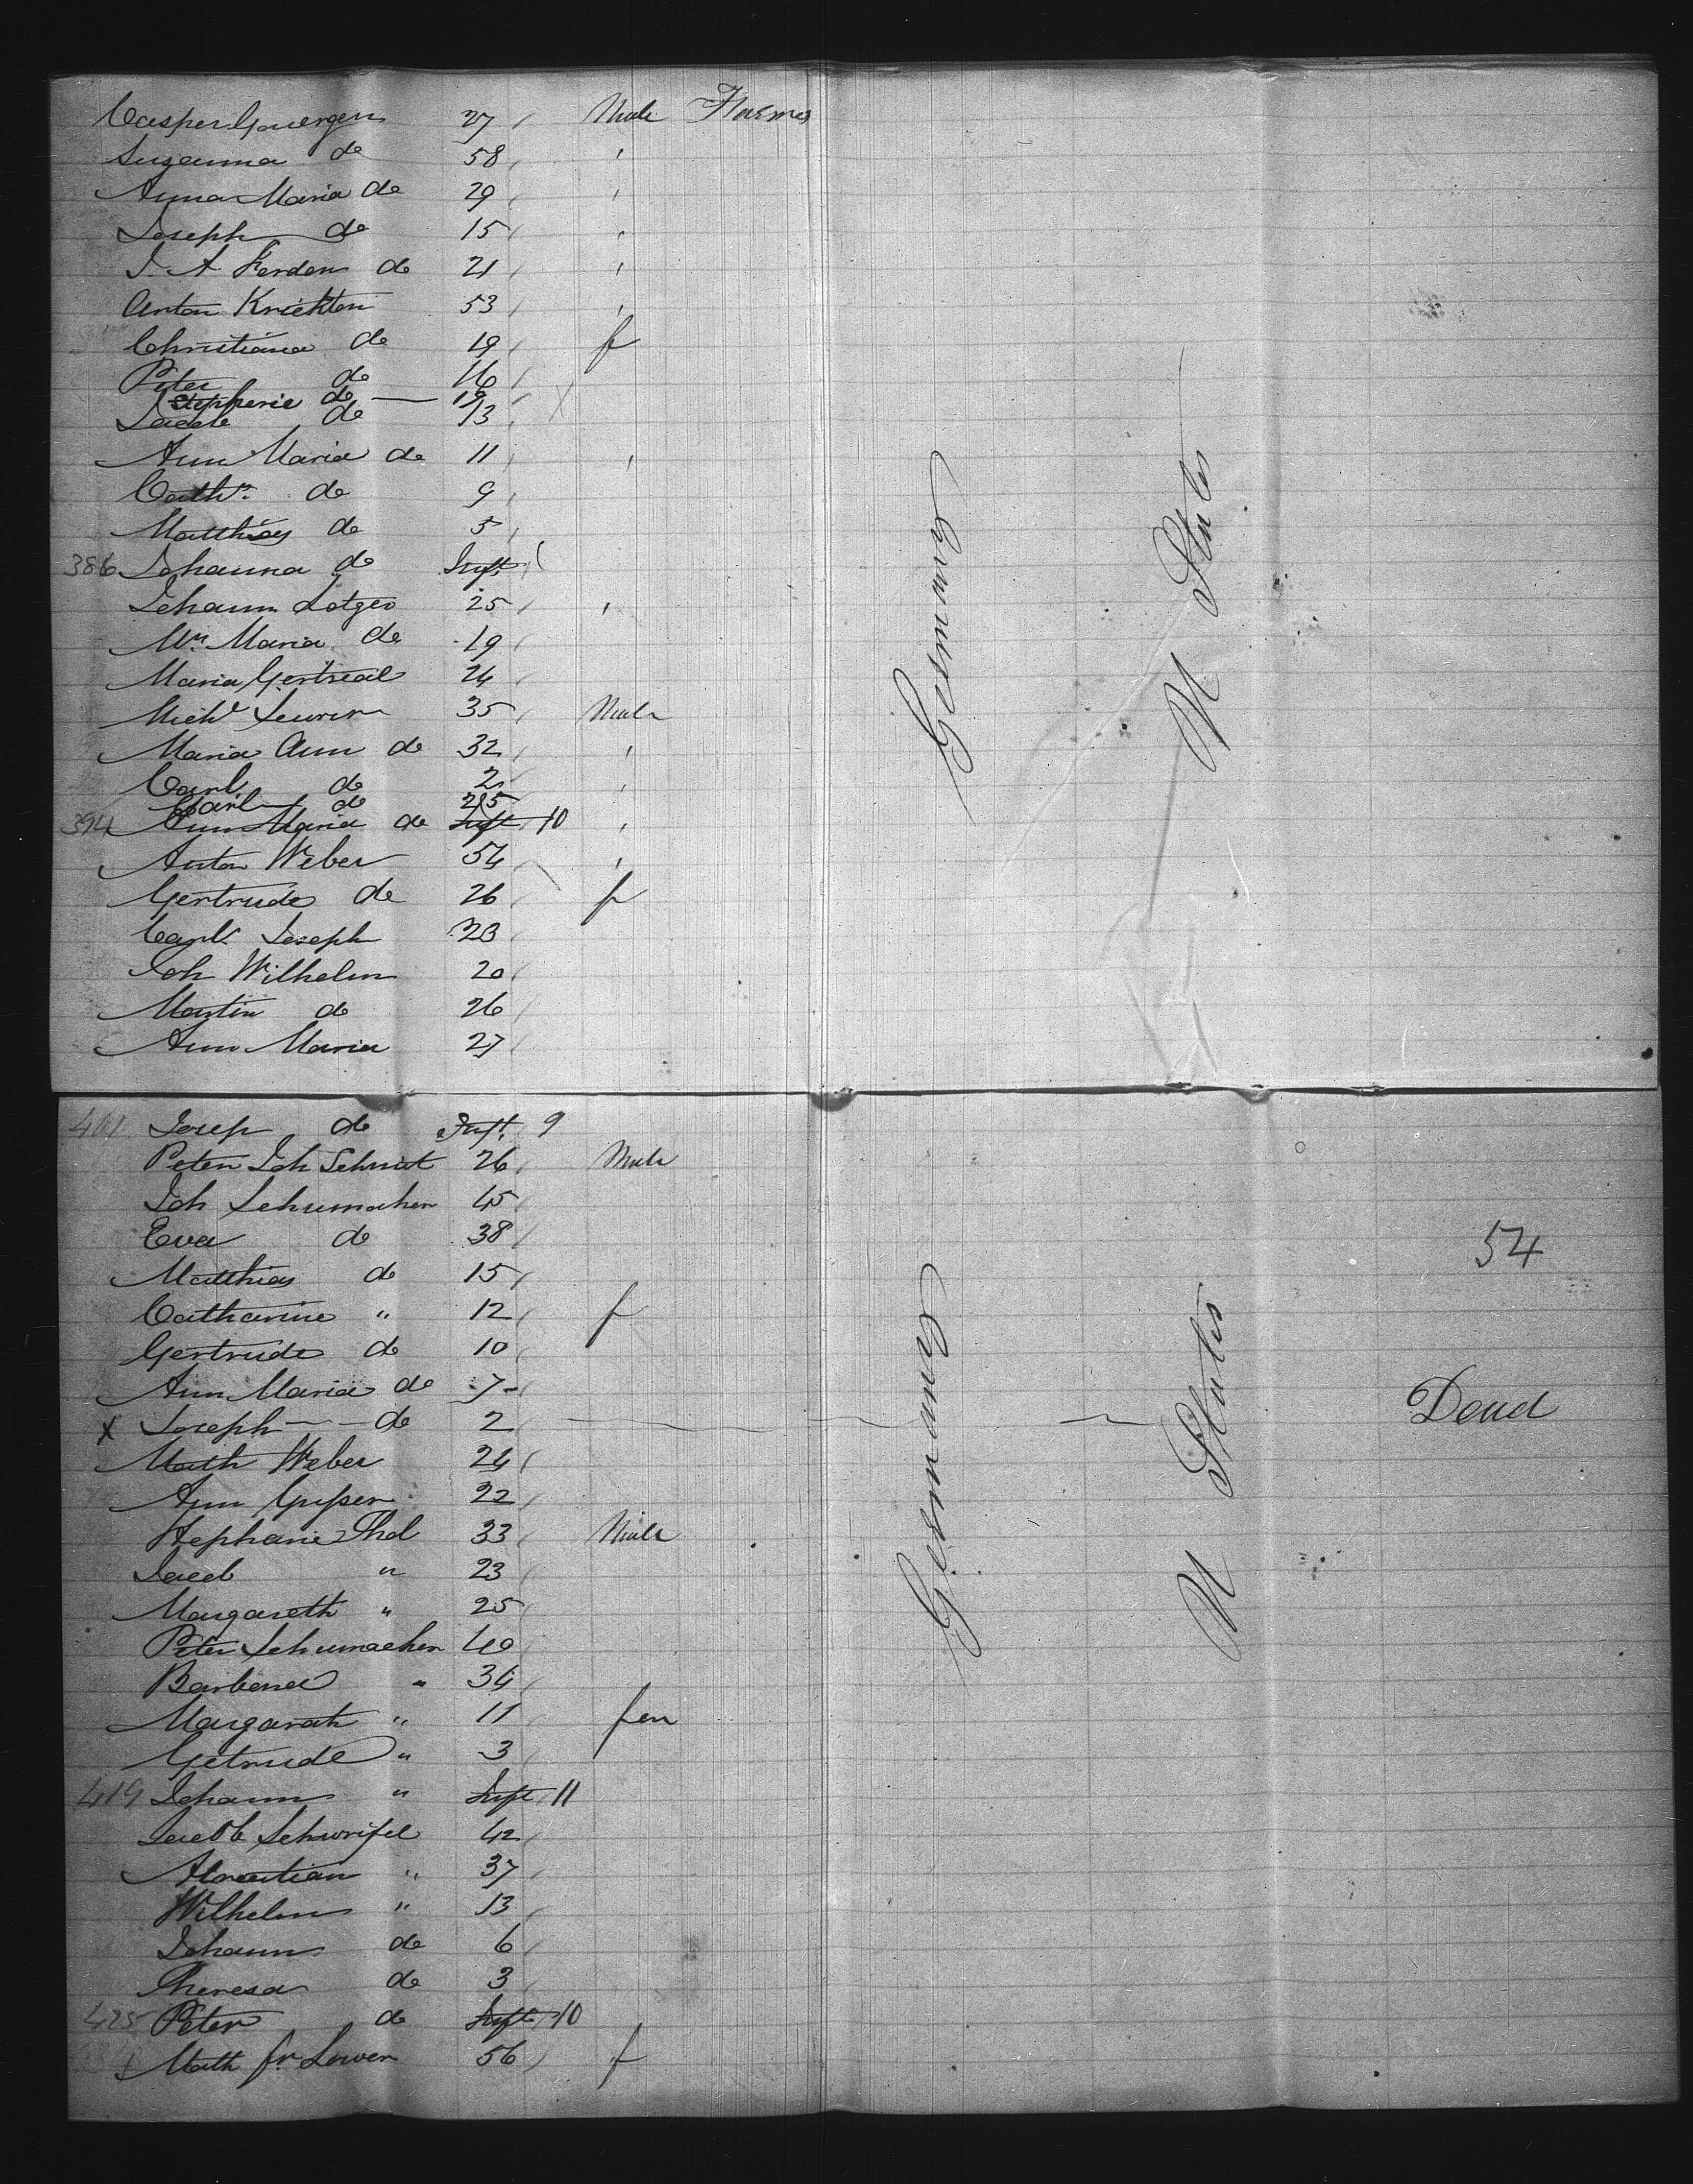 Casper Gouergen 27 Male Farmer
Suzanna do 58 "
Anna Maria do 29 "
Joseph do 15 "
J. A Ferdon do 21 "
Anton Krickton 53 "
Christiana do 19 f
Peter do 16
Stepherie do — 19 X
Jacob do 13
Ann Maria do 11 "
Cathn. do 9
Matthias do 5
386 Johanna do Inft
Johann Lotges 25 "
Mn Maria do 19
Maria Gertreal 24
Michl Leurer 35 Male
Maria Ann do 32 "
Carl do 2 "
Carl do 25
394 Ann Maria do Inft 10 "
Anton Weber 54 "
Gertrude do 26 f
Carl Joseph 23
Joh Wilhelm 20
Martin do 26
Ann Maria 27
Germany
U States
401 Josep do Inft. 9
Peter Joh Schmit 26 Male
Joh Schumacher 45
Eva do 38 54
Matthias do 15
Catharine " 12 f
Gertrude do 10
Ann Maria do 7
X Joseph — do 2 Dead
Math Weber 24
Ann 22
Stephanie Thel 33 Male
Jacob " 23
Margareth " 25
Peter Schumacher 40
Barbend " 34
Margarath " 11 fem
Getrude " 3
419 Johann " Inft 11
Jacob Schweifel 42
37
Wilhelm " 13
Johann do 6
Theresa do 3
425 Peter do Inft 10
Math fr Lower 56 f
Germany
U States